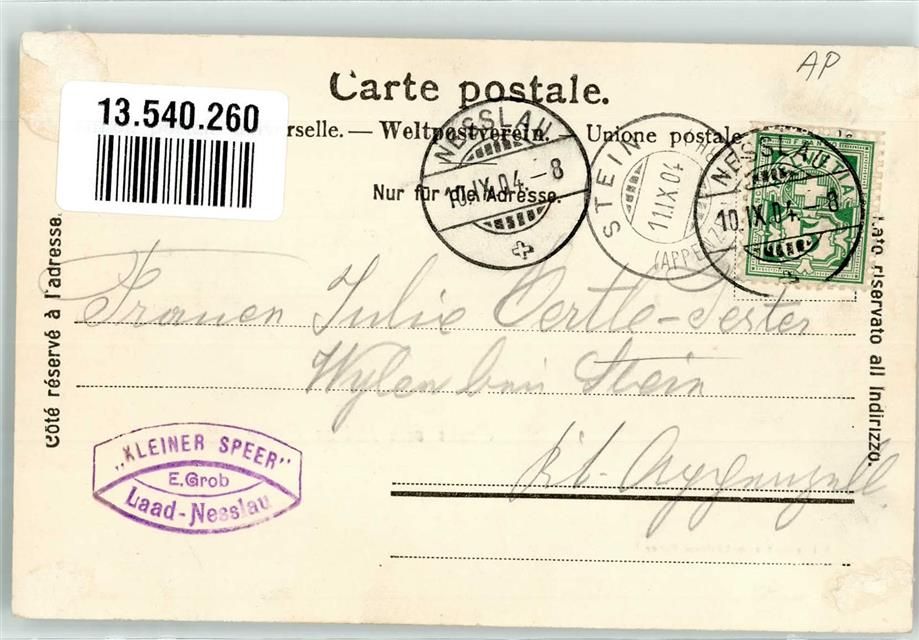 AP
Carte postale.
13.540.260
rselle. — Weltpostverein. Unione postale
Nur für die Adresse.
NESSLAU
10.IX.04.-8
STEIN
11.IX.04
(APPENZ
NESSLAU
10.IX.04. 8
HELVETIA
5
Côté réservé à l'adresse.
Lato riservato all Indirizzo.
Frauen Julie Oertle-
Wylen beim Stein
Kt. Appenzell
„KLEINER SPEER"
E.Grob
Laad-Nesslau